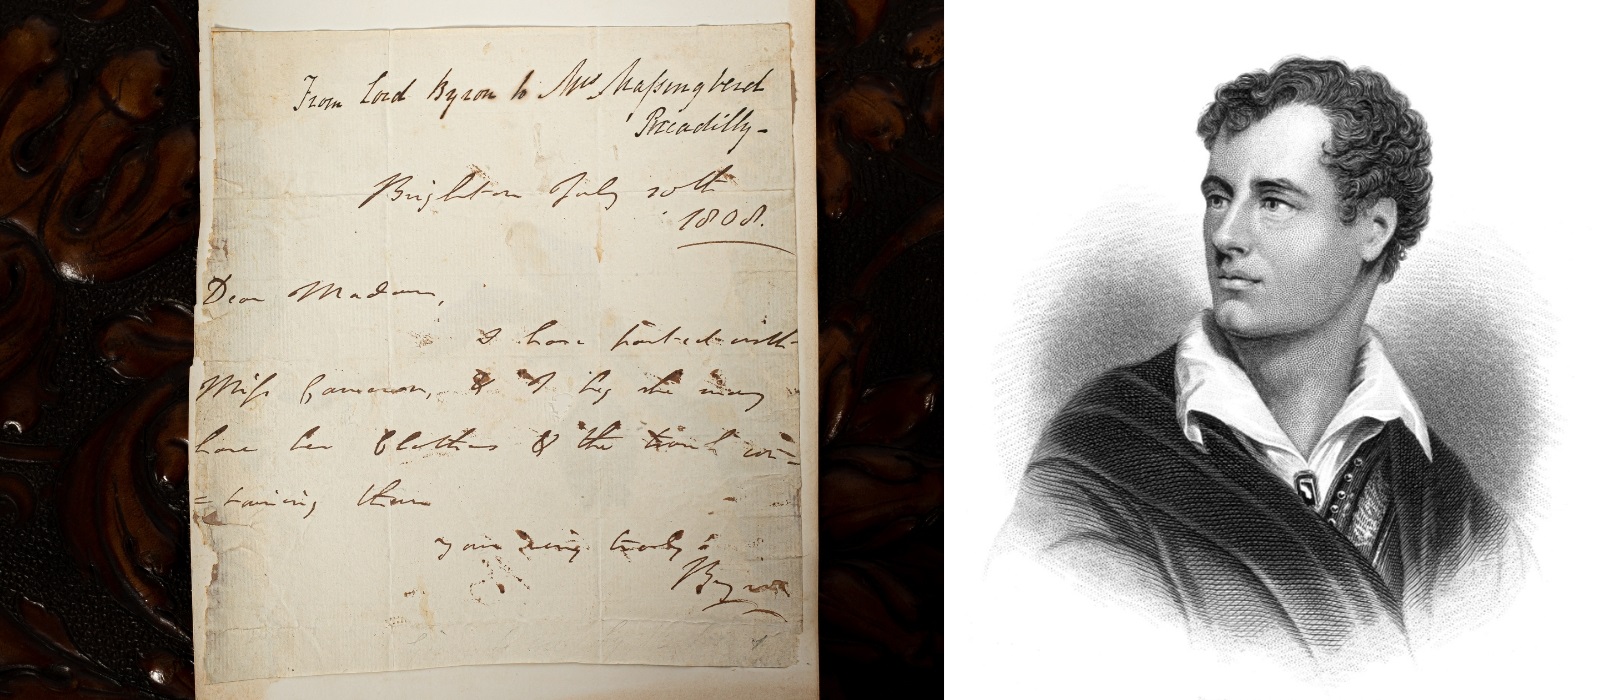 From Lord Byron to Mrs Massingberd
Piccadilly -
Brighton July 20th
1808.
Dear Madam,
I have parted with
Miss Cameron, & I beg she may
have her Clothes & the trunk con=
=taining them
yours very truly
Byron